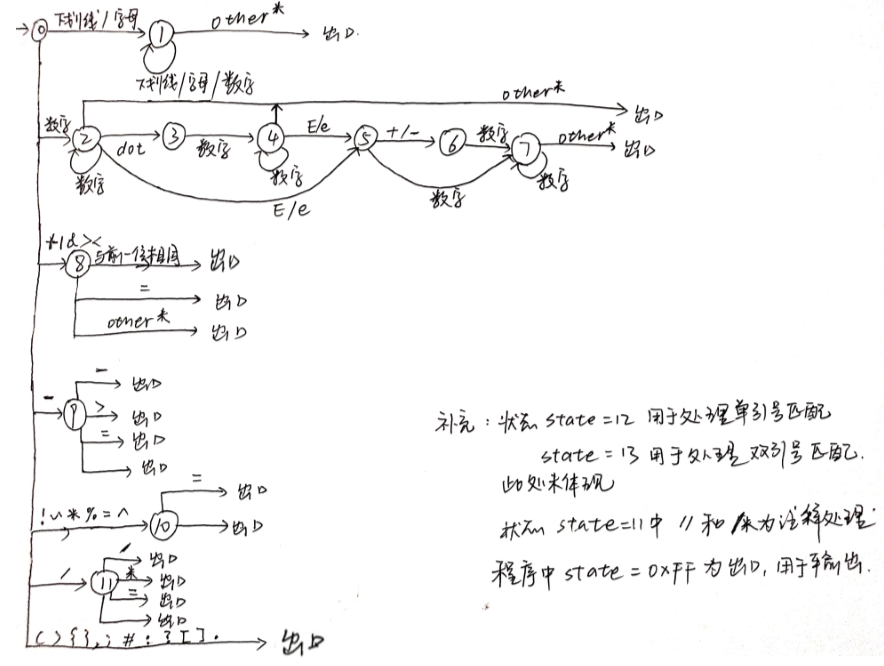 0 下划线/字母 1 other* 出口.
下划线/字母/数字
other* 出口
数字 2 dot 3 数字 4 E/e 5 +/- 6 数字 7 other* 出口
数字 数字 数字 数字
E/e
+|&>< 8 与前一位相同 出口
= 出口
other* 出口
- 9 - 出口
> 出口
= 出口
出口
!~*%=^ 10 = 出口
出口
/ 11 / 出口
* 出口
= 出口
出口
(){},;#:?[]. 出口
补充:状态 state=12 用于处理单引号匹配
state=13 用于处理双引号匹配.
此处未体现
状态 state=11中 //和/*为注释处理.
程序中 state=0xFF 为出口,用于输出.